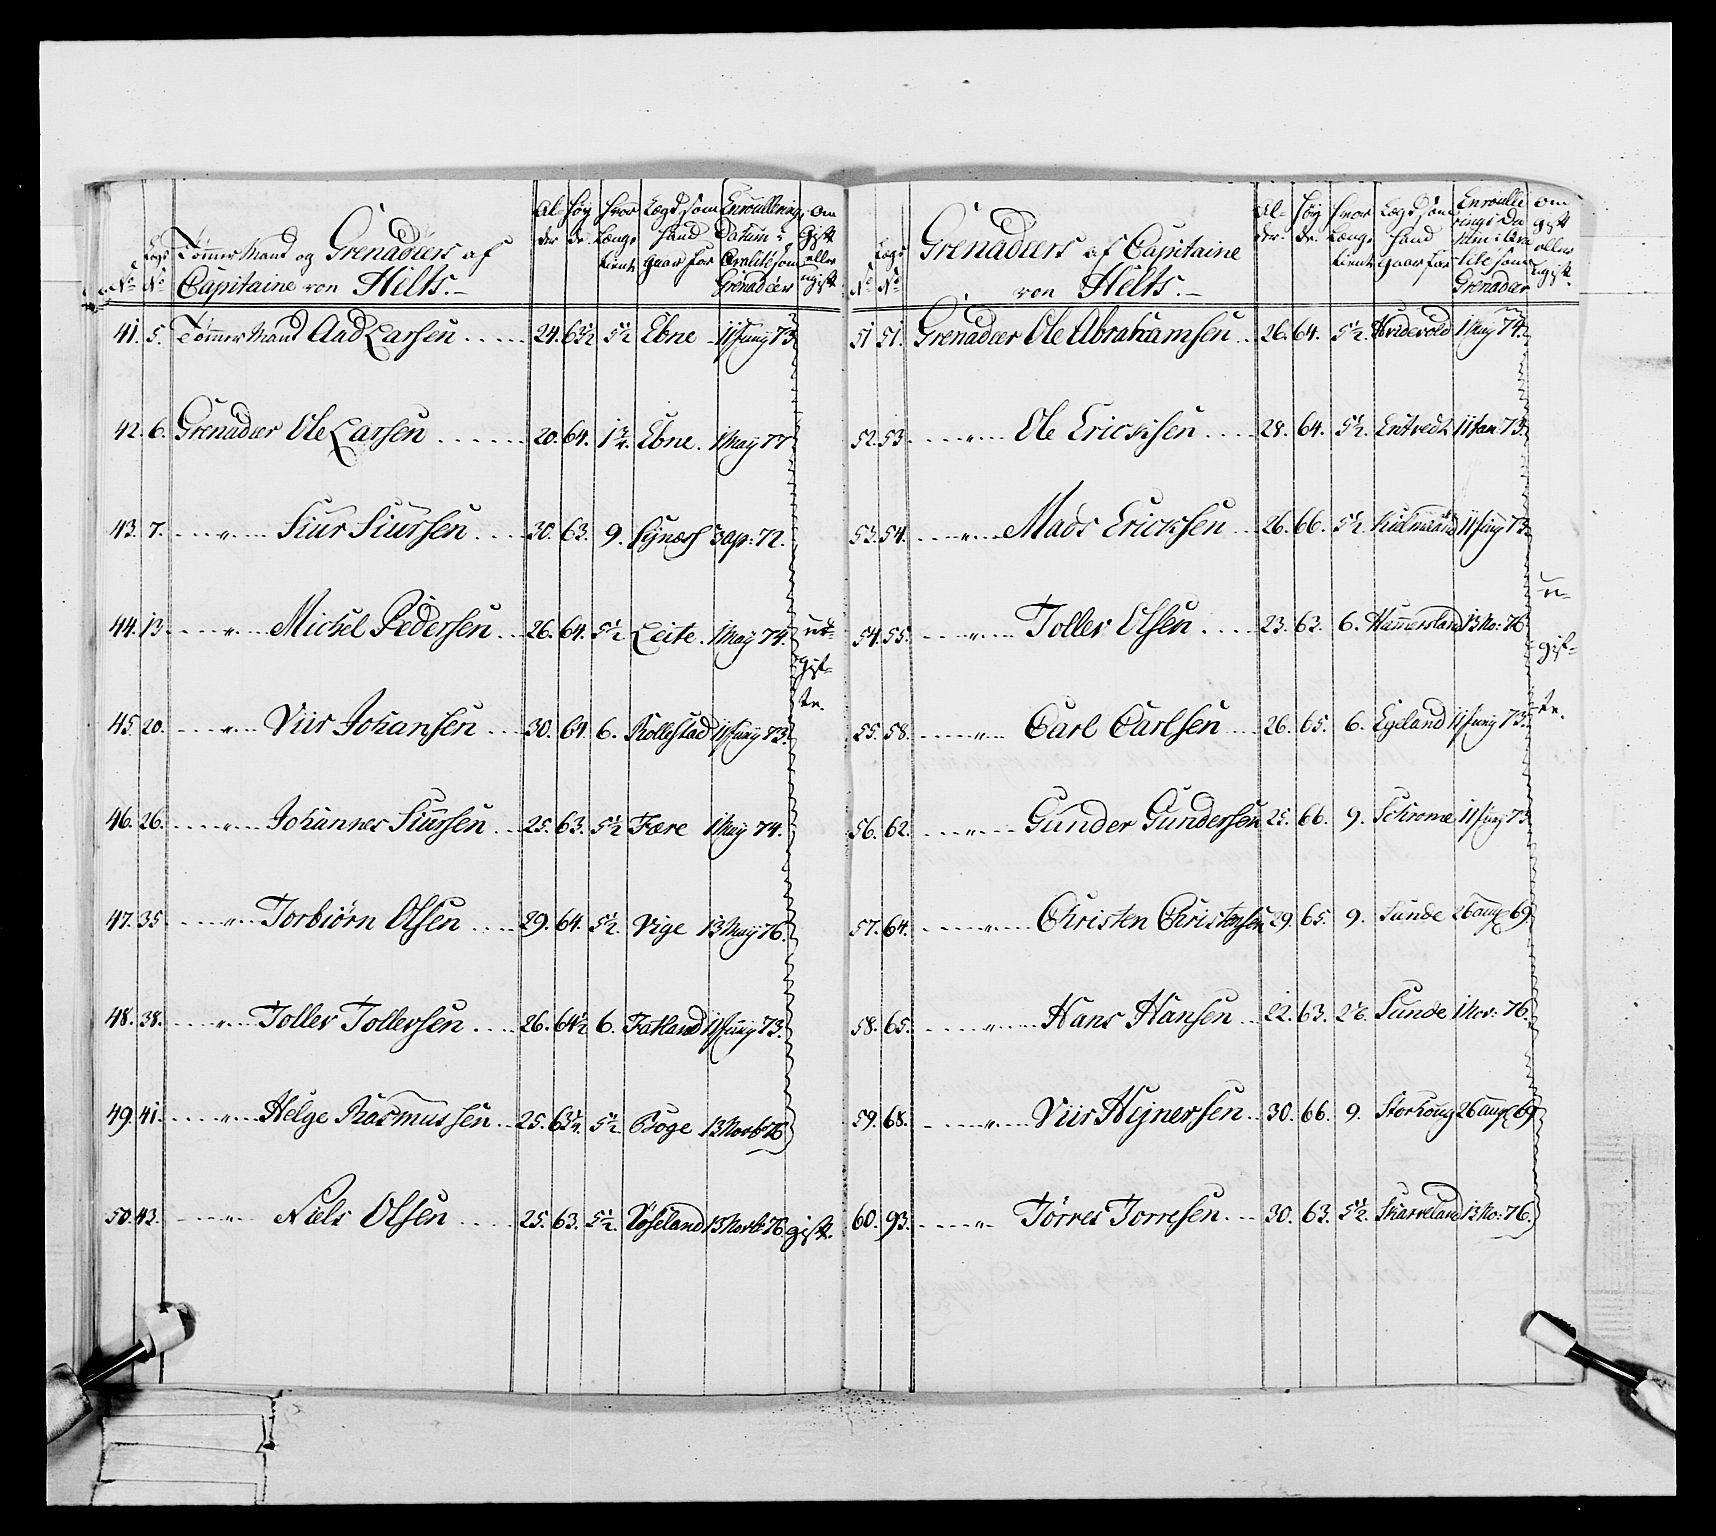 No Lægs No Tømmermand og Grenadeers af Capitaine von Helts.
Alder Høyde. Hvor Længe tient Lægd som hand gaar for Enroullerings Datum i Qvalité som Grenadeer Om Gift eller ugift
41. 5. Tømmermand Aad Larsen 24. 63½ 5½ Ebne 11 Juny 73
42. 6. Grenadeer Ole Larsen 20. 64. 1¾. Ebne. 1 May 77
43. 7. " Siur Siursen 30. 63. 9. 3 Ap: 72.
44. 13. " Michel Pedersen 26. 64. 5½ Leite. 1 May 74.
45. 20. " Viir Johansen 30. 64. 6. Rollestad 11 Juny 73.
46. 26. " Johannes Siursen 25. 63. 5½ Fære 1 May 74.
47. 35 " Torbiörn Olsen 29. 64. 5½ Vige 13 May 76.
48. 38. " Toller Tollersen 26. 64½ 6. Fatland 11 Juny 73.
49. 41. " Helge Rasmussen 25. 63½. 5½ Boge 13 Novb: 76
ugifte.
50. 43. " Niels Olsen 25. 63. 5½ 13 Novb: 76. gift.
No Lægs No Grenadeers af Capitaine von Helts.
Alder. Høyde. Hvor Længe tient Lægd som hand gaar for Enroullerings Datum i Qvalité som Grenadeer Om gift eller ugift.
51 51. Grenadeer Ole Abrahamsen 26. 64. 5½. Hvidevold 1 May 74.
52. 53 " Ole Ericksen 28. 64. 5½. 11 Jan: 73.
53. 54. " Mads Ericksen 26. 66. 5½ 11 Juny 73.
54. 55. " Toller Olsen 23. 63. 6. Hammersland 13 No: 76
55. 58. " Carl Carlsen 26. 65. 6. Egeland 11 Juny 73.
56. 62. " Gunder Gundersen 25. 66. 9. 11 Juny 73.
57. 64. " Christen Christensen 29. 65. 9. Sunde 26 aug 69
58. 65. " Hans Hansen 22. 63. Sunde 1 Nov: 76.
59. 68. " Viir Hejnersen 30. 66. 9. Storhoug 26 aug 69
60. 93. " Törres Torresen 30. 63. 5½. Skarveland 13 No: 76.
ugifte.